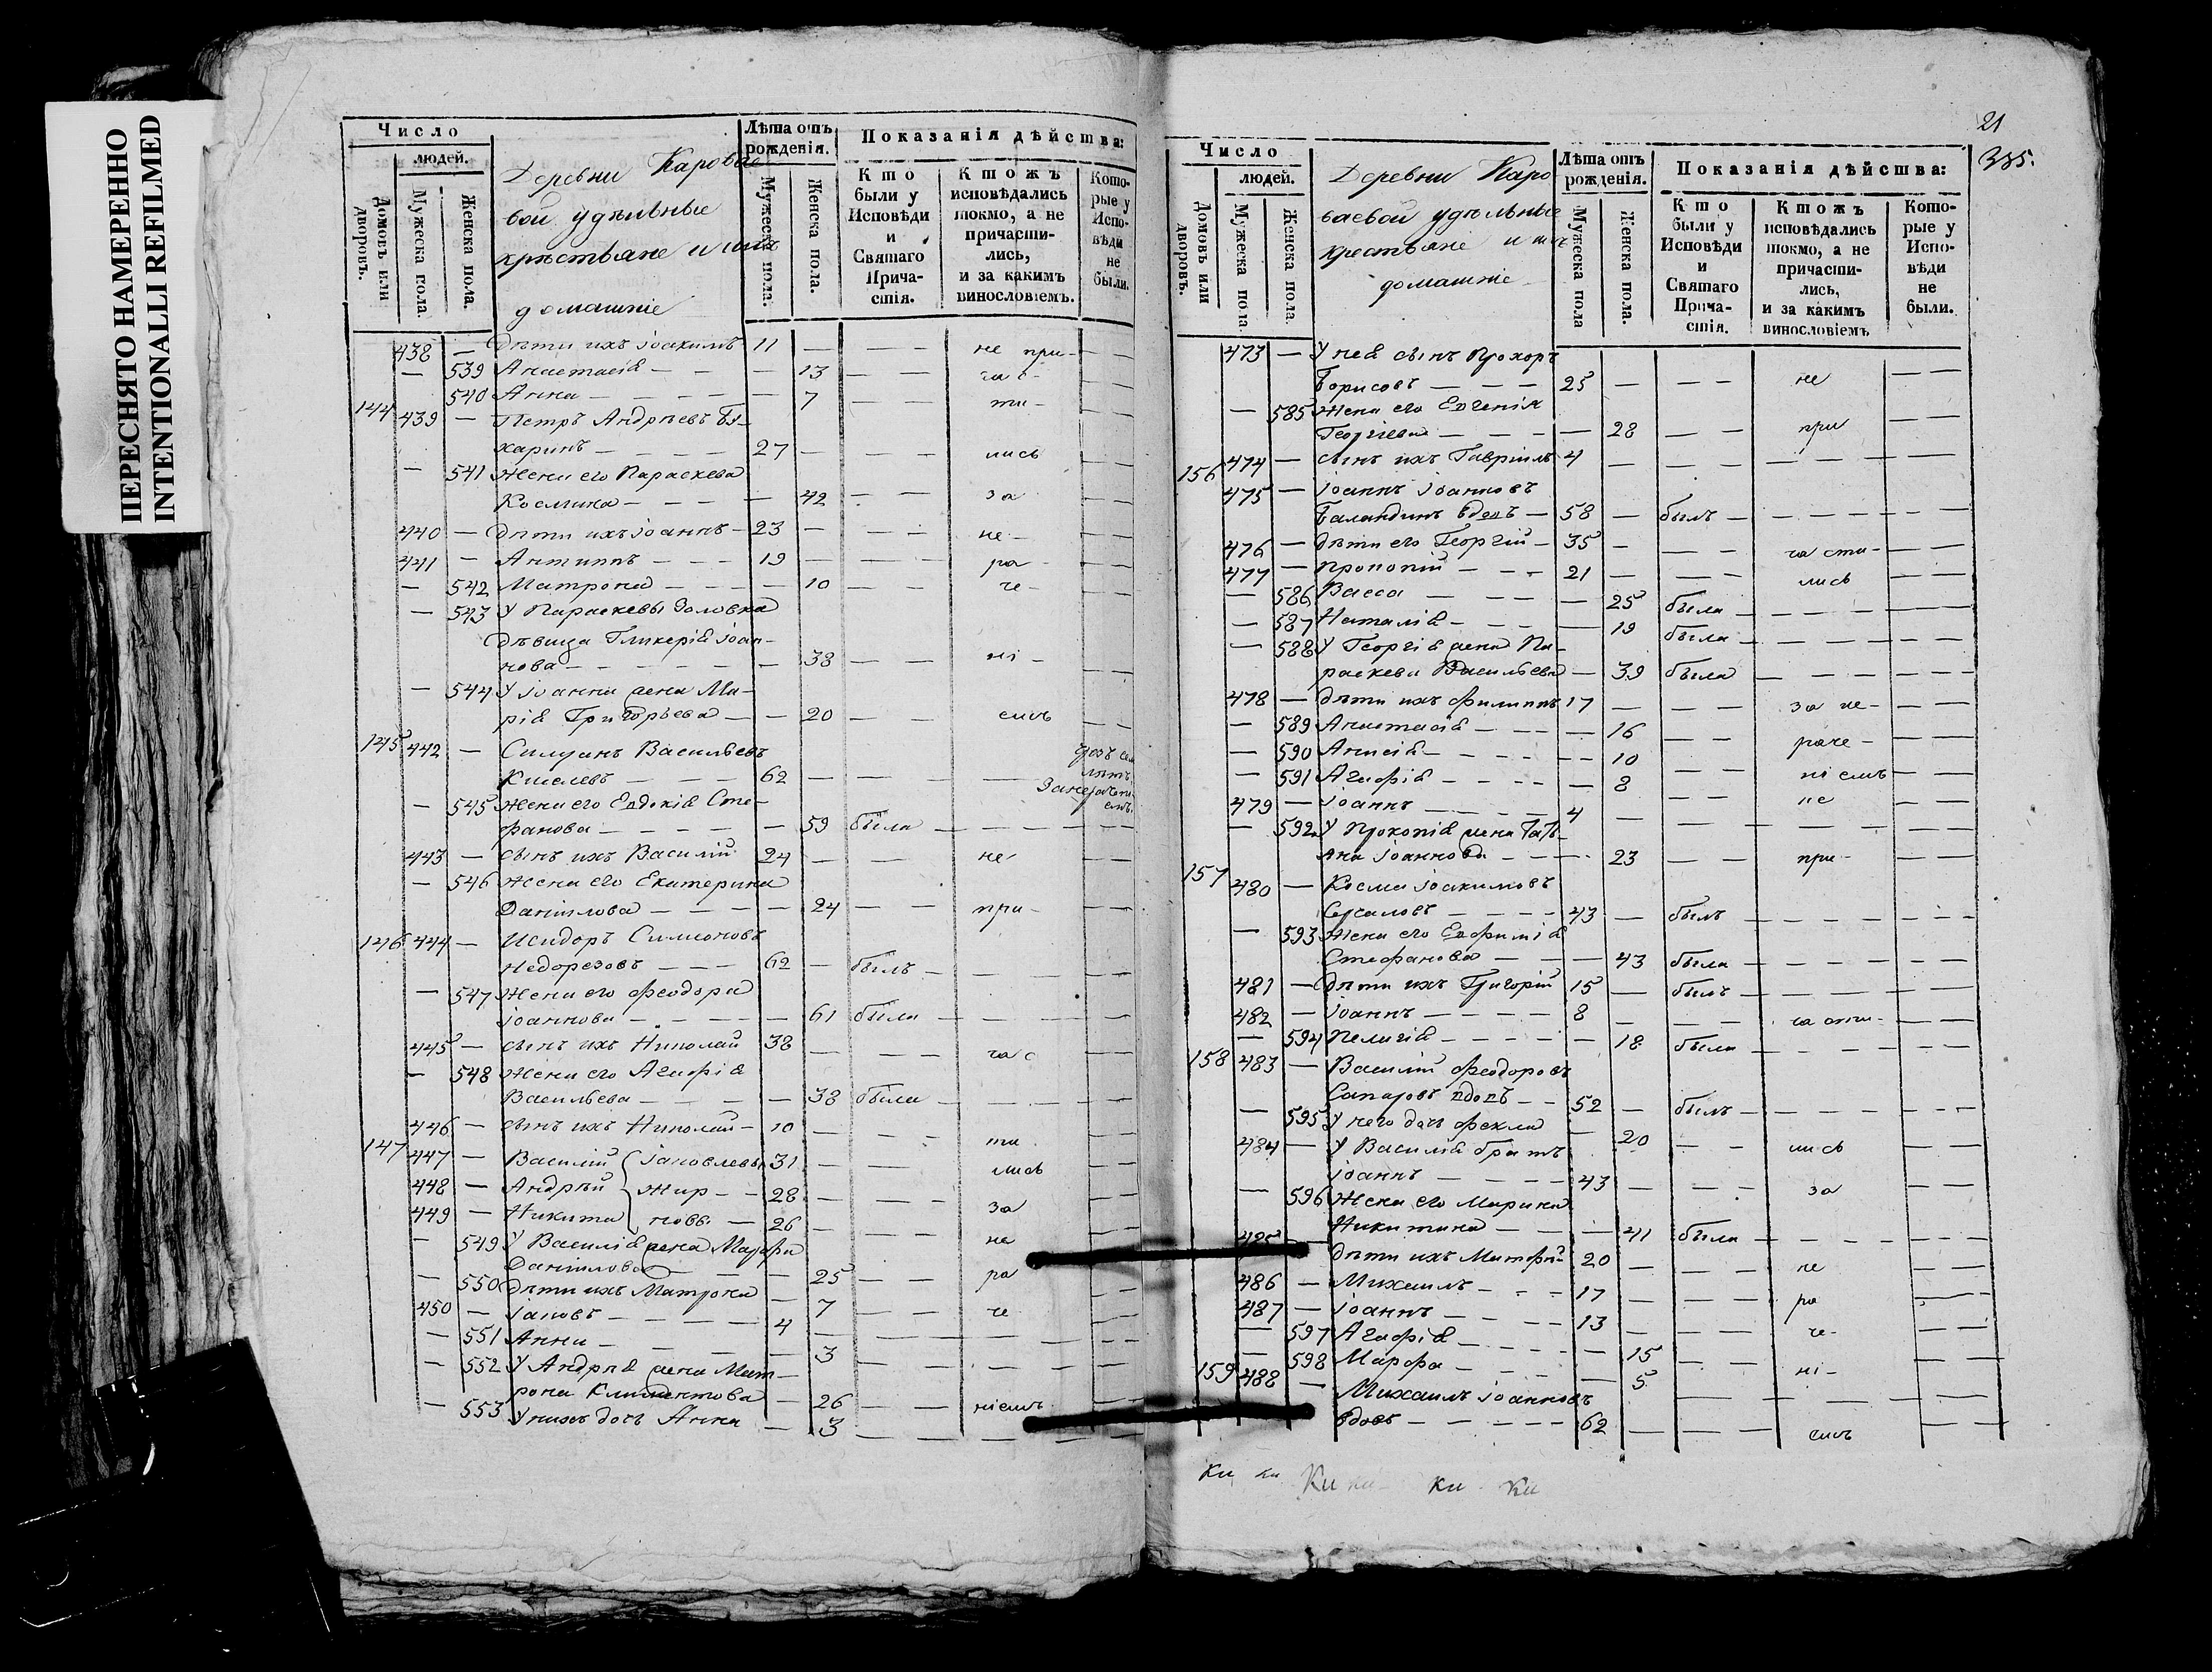 ПЕРЕСНЯТО НАМЕРЕННО
INTENTIONALLI REFILMED
Число
людей.
Домовъ или дворовъ.
Мужеска пола.
Женска пола.
Деревни Карова
вой удѣльные
крѣстьяне и ихъ
домашніе
Лѣта отъ рожденія.
Мужеска пола.
Женска пола.
Показанія дѣйства:
Кто были у Исповѣди и Святаго Причастія.
Ктожъ исповѣдались токмо, а не причастились, и за какимъ винословіемъ.
Которые у Исповѣди не были.
438 — Дѣти ихъ Іоакимъ 11 — — — не при- — —
— 539 Анастасія — — — 13 — — час- — —
540 Анна — — — — 7 — — ти- — —
144 439 — Петръ Андрѣевъ Бу-
харинъ — — — — 27 — — — лись — —
— 541 Жена его Параскева
Космина — — — — 42 — — за — —
440 — Дѣти ихъ Іоаннъ — 23 — — — не- — —
441 — Антиппъ — — — 19 — — — ра- — —
— 542 Матрона — — — 10 — — че- — —
— 543 У Параскевы золовка
дѣвица Гликерія Іоан-
нова — — — — — — 38 — — ні- — —
— 544 У Іоанна жена Ма-
рія Григорьева — — 20 — — емъ — —
145 442 — Силуанъ Васильевъ
Киселевъ — — — 62 — — — —
— 545 Жена его Евдокія Сте-
фанова — — — — — 59 была — — — — — —
443 — Сынъ ихъ Василій 24 — — — не — —
— 546 Жена его Екатерина
Даніилова — — — — 24 — — при- — —
146 444 — Исидоръ Симионовъ
Недорезовъ — — — 62 — былъ — — — — —
— 547 Жена его Феодора
Іоаннова — — — — — 61 была — — — — — —
445 — Сынъ ихъ Николай 38 — — — час — —
— 548 Жена его Агафія
Васильева — — — — 38 была — — — — — —
446 — Сынъ ихъ Николай — 10 — — — ти — —
147 447 — Василій Іаковлевы 31 — — — лись — —
448 — Андрѣй Жир- — — 28 — — — за — —
449 — Никита новы — 26 — — — не — —
— 549 У Василія жена Марфа
Даниилова — — — 25 — — ра — —
— 550 Дѣти ихъ Матрона — 7 — — че — —
450 — Іаковъ — — — — 4 — — — — — —
— 551 Анна — — — — — 3 — — — — —
— 552 У Андрѣя жена Мат-
рона Климентова — 26 — — ніемъ — —
— 553 У нихъ дочь Анна — 3 — — — — — —
21
385.
Число
людей.
Домовъ или дворовъ.
Мужеска пола
Женска пола.
Деревни Каро
ваевой удѣльные
крестьяніе и ихъ
домашніе
Лѣта отъ рожденія.
Мужеска пола
Женска пола.
Показанія дѣйства:
Кто были у Исповѣди и Святаго Причастія.
Ктожъ исповѣдались токмо, а не причастились, и за какимъ винословіемъ
Которые у Исповѣди не были.
473 — У нея сынъ Прохоръ
Борисовъ — — — 25 — — — не — —
— 585 Жена его Евгенія
Георгіева — — — — 28 — — при — —
474 — Сынъ ихъ Гавріилъ 4 — — — — — — —
156 475 — Іоаннъ Іоанновъ
Баландинъ вдовъ — 58 — былъ — — — — — —
476 — Дѣти его Георгій — 35 — — — части- — —
477 — Прокопій — — — 21 — — — лись — —
— 586 Васса — — — — 25 была — — — — — —
— 587 Наталія — — — 19 была — — — — — —
— 588 У Георгія жена Па-
раскева Васильева — 39 была — — — — — —
478 — Дѣти ихъ Филиппъ 17 — — — за не- — —
— 589 Анастасія — — — — 16 — — раче- — —
— 590 Анисія — — — — — 10 — — ніемъ — —
— 591 Агафія — — — — — 8 — — не — —
479 — Іоаннъ — — — — 4 — — — — — — —
— 592 У Прокопія жена Тать-
яна Іоаннова — — — 23 — — при- — —
157 480 — Косма Іоакимовъ
— — — — 43 — былъ — — — — — —
— 593 Жена его Евфимія
Стефанова — — — 43 была — — — — — —
481 — Дѣти ихъ Григорій 15 — былъ — — — — — —
482 — Іоаннъ — — — — 8 — — — части- — —
— 594 Пелагія — — — — — 18 была — — — — — —
158 483 — Василій Феодоровъ
вдовъ — — 52 — былъ — — — — — —
— 595 У него дочь Фекла — 20 — — лись — —
484 — У Василія братъ
Іоаннъ — — — — 43 — — — за — —
— 596 Жена его Марина
Никитина — — — 41 была — — — — — —
485 — Дѣти ихъ Матфей 20 — — — не — —
486 — Михаилъ — — — 17 — — — ра — —
487 — Іоаннъ — — — — 13 — — — че- — —
— 597 Агафія — — — — — 15 — — ні- — —
598 Марфа — — — — — 5 — — — — —
159 488 — Михаилъ Іоанновъ
вдовъ — — — — — 62 — — — емъ — —
Ки ки Ки ки- ки- Ки